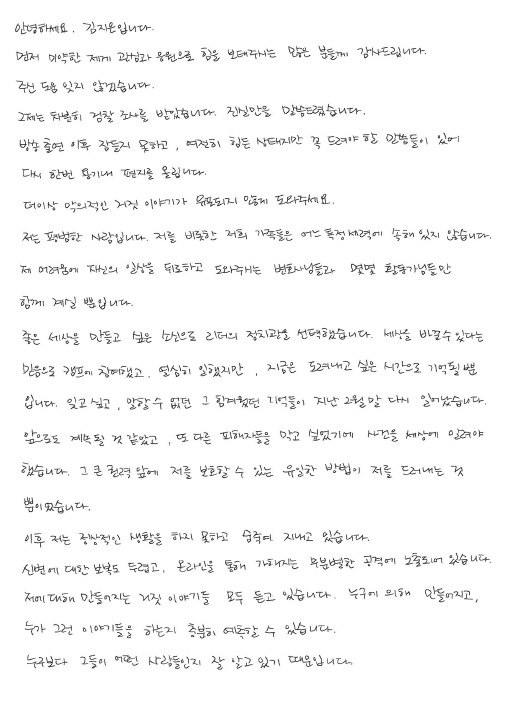 안녕하세요. 김지은입니다.
먼저 미약한 제게 관심과 응원으로 힘을 보태주시는 많은 분들께 감사드립니다.
주신 도움 잊지 않겠습니다.
그제는 차분히 검찰 조사를 받았습니다. 진실만을 말씀드렸습니다.
방송 출연 이후 잠들지 못하고, 여전히 힘든 상태지만 꼭 드려야 할 말씀들이 있어
다시 한번 용기내 편지를 올립니다.
더이상 악의적인 거짓 이야기가 유포되지 않게 도와주세요..
저는 평범한 사람입니다. 저를 비롯한 저희 가족들은 어느 특정 세력에 속해 있지 않습니다.
제 어려움에 자신의 일상을 뒤로하고 도와주시는 변호사님들과 몇몇 활동가님들만
함께 계실 뿐입니다.
좋은 세상을 만들고 싶은 소신으로 리더의 정치관을 선택했습니다. 세상을 바꿀 수 있다는
믿음으로 캠프에 참여했고, 열심히 일했지만, 지금은 도려내고 싶은 시간으로 기억될 뿐
입니다. 잊고 싶고, 말할 수 없던 그 힘겨웠던 기억들이 지난 2월 말 다시 일어났습니다.
앞으로도 계속될 것 같았고, 또 다른 피해자들을 막고 싶었기에 사건을 세상에 알려야
했습니다. 그 큰 권력 앞에 저를 보호할 수 있는 유일한 방법이 저를 드러내는 것
뿐이었습니다.
이후 저는 정상적인 생활을 하지 못하고 숨죽여 지내고 있습니다.
신변에 대한 보복도 두렵고, 온라인을 통해 가해지는 무분별한 공격에 노출되어 있습니다.
저에 대해 만들어지는 거짓 이야기들 모두 듣고 있습니다. 누구에 의해 만들어지고,
누가 그런 이야기들을 하는지 충분히 예측할 수 있습니다.
누구보다 그들이 어떤 사람들인지 잘 알고 있기 때문입니다.